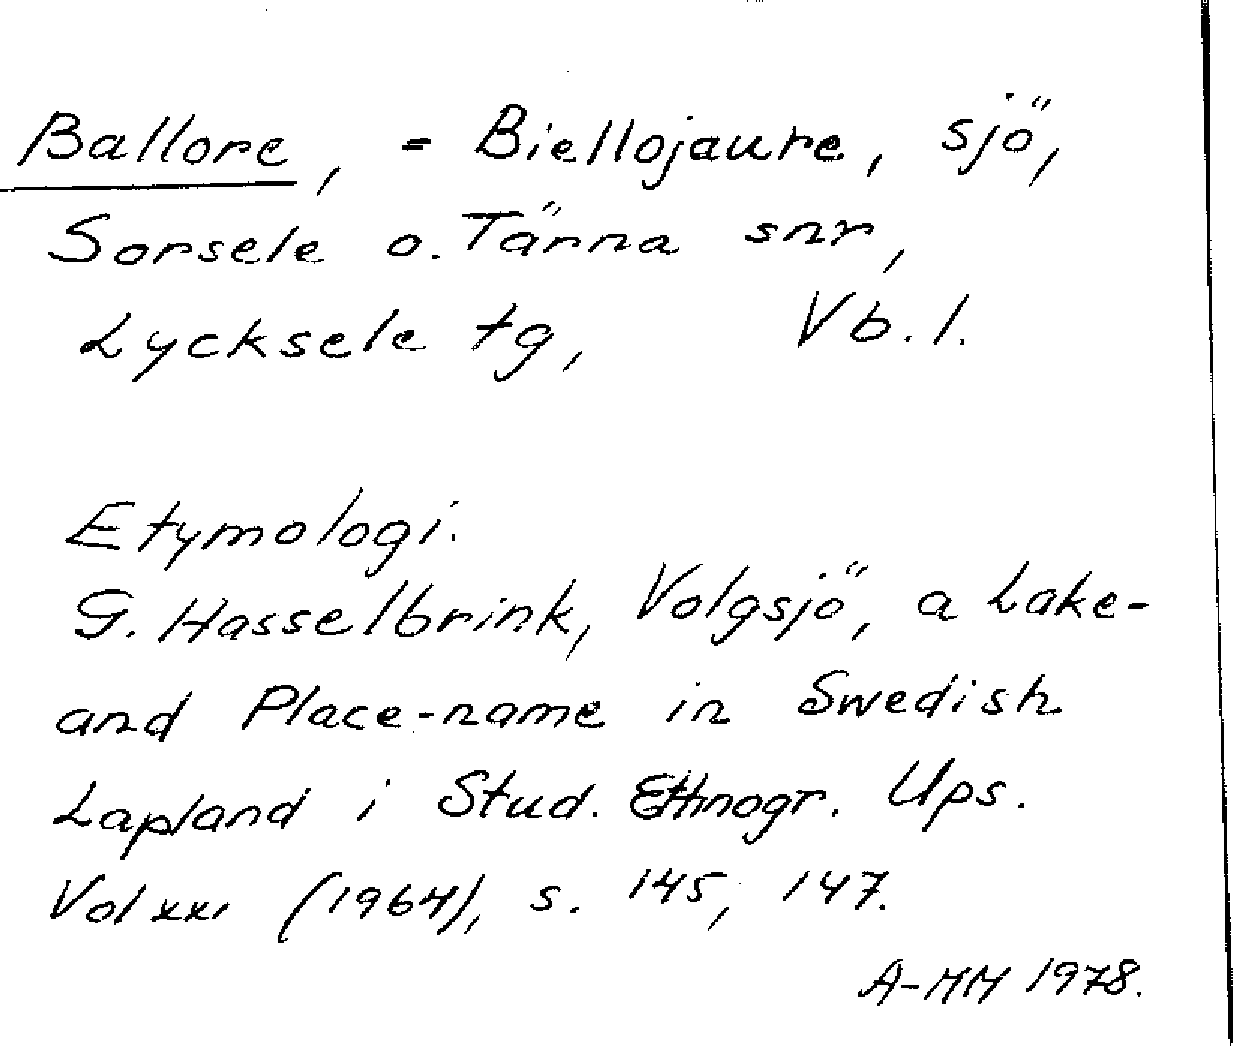 Ballore, = Biellojaure, sjö,
Sorsele o. Tärna snr,
Lycksele tg, Vb. l.
Etymologi.
G. Hasselbrink, Volgsjö, a Lake-
and Place-name in Swedish
Lapland i Stud. Ethnogr. Ups.
Vol xxi (1964), s. 145, 147.
A-MM 1978.